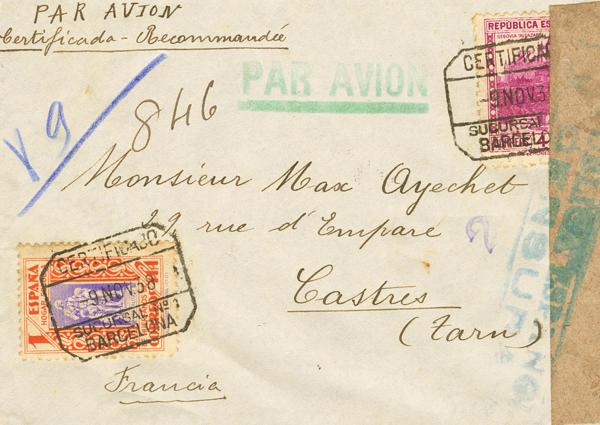 PAR AVION
Certificada - Recommandée
PAR AVION
REPÚBLICA ES
CERTIFICAD
9 NOV 3
SUCURSAL
BARCELO
4
V 9
846
Monsieur Max Ayechet
29 rue d'Emparé
2
Castres
(Tarn)
CERTIFICADO
9 NOV 38
SUCURSAL Nº
BARCELONA
ESPAÑA
HOGAR
1
Francia